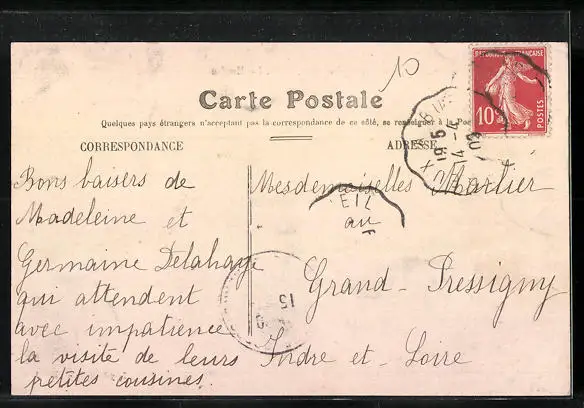 10
Carte Postale
Quelques pays étrangers n'acceptant pas la correspondance de ce côté, se renseigner à la Poste
CORRESPONDANCE
ADRESSE
RÉPUBLIQUE FRANÇAISE
10
POSTES
19 5
14 -4
09
Bons baisers de
Madeleine et
Germaine Delahaye
qui attendent
avec impatience
la visite de leurs
petites cousines.
Mesdemoiselles Marlier
au
Grand-Pressigny
Indre et-Loire
EIL
15